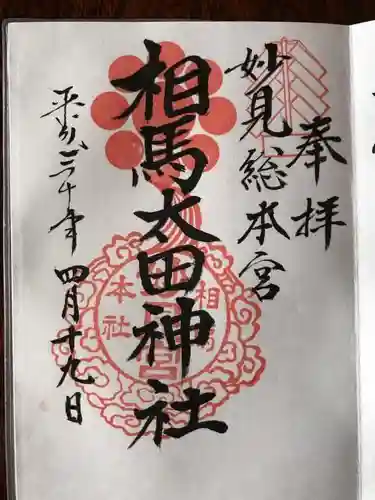 奉拝
妙見総本宮
相馬太田神社
平成三十年四月十九日
相馬
本社